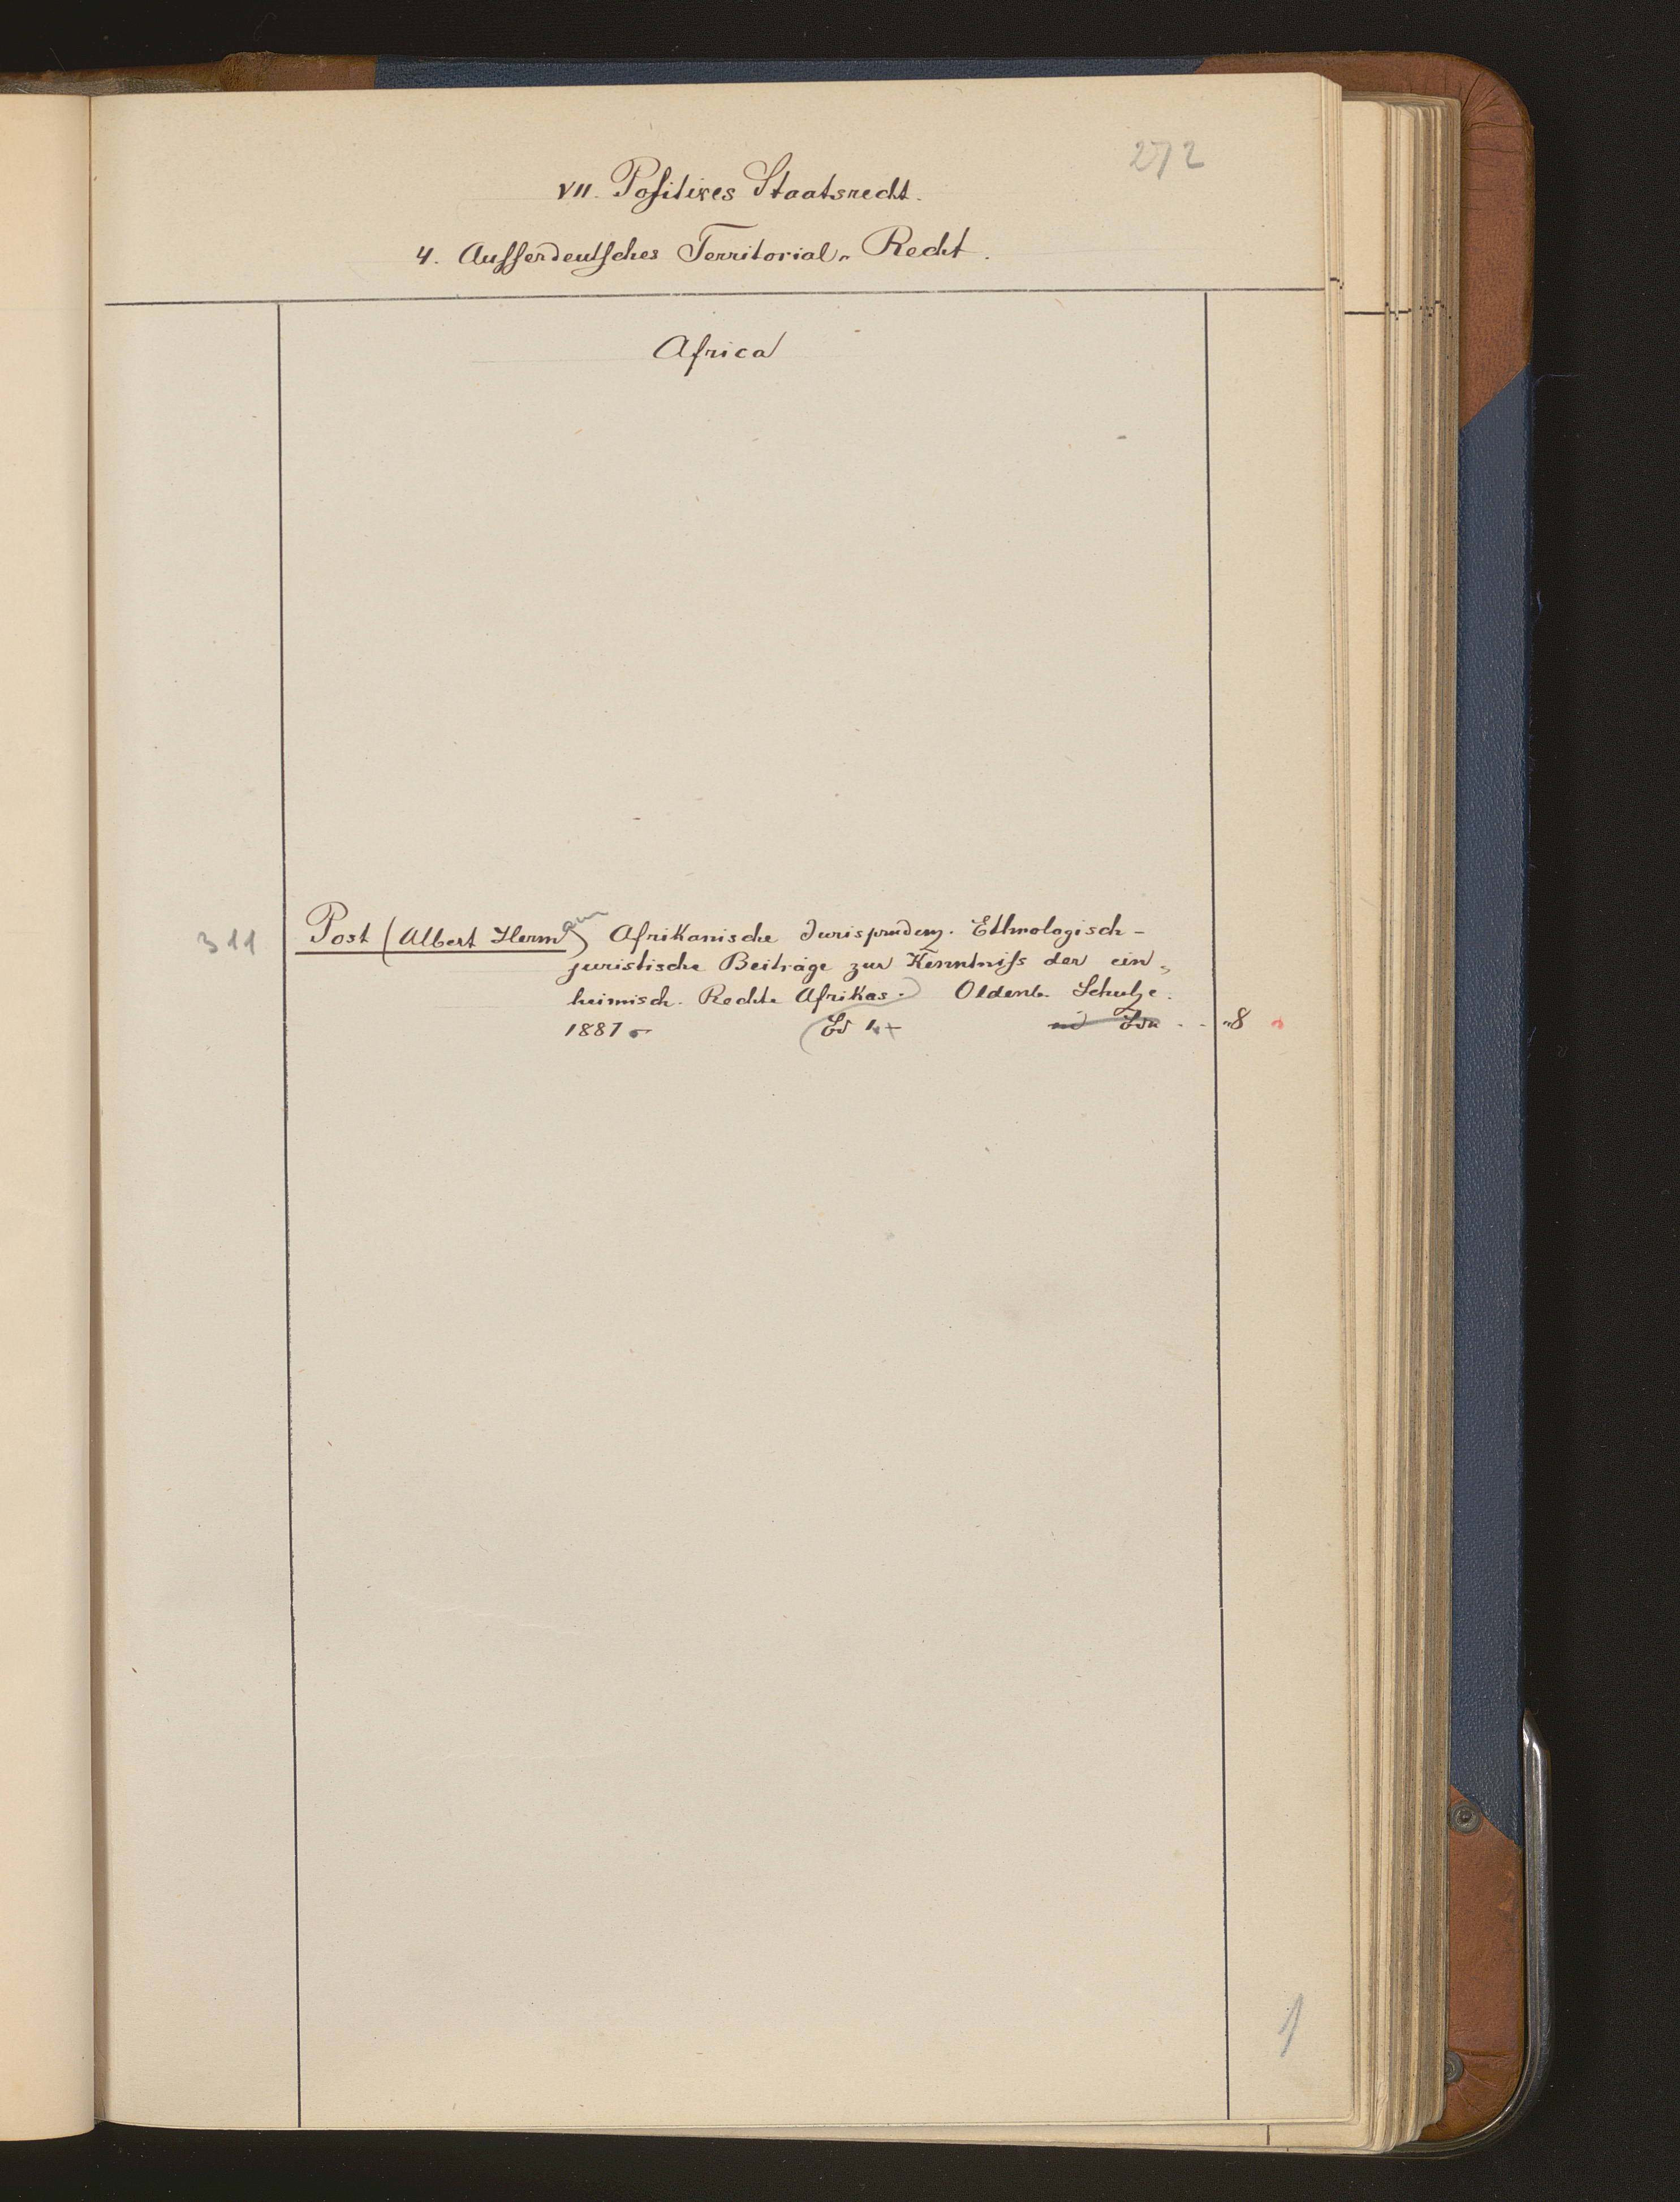 272
VII. Positives Staatsrecht.
4. Ausserdeutsches Territorial- Recht.
Africa
311
Post (Albert Hermann) Afrikanische Jurisprudenz. Ethnologisch-
juristische Beiträge zur Kenntniss der ein-
heimisch. Rechte Afrikas. Oldenb. Schulze.
1887
8
1